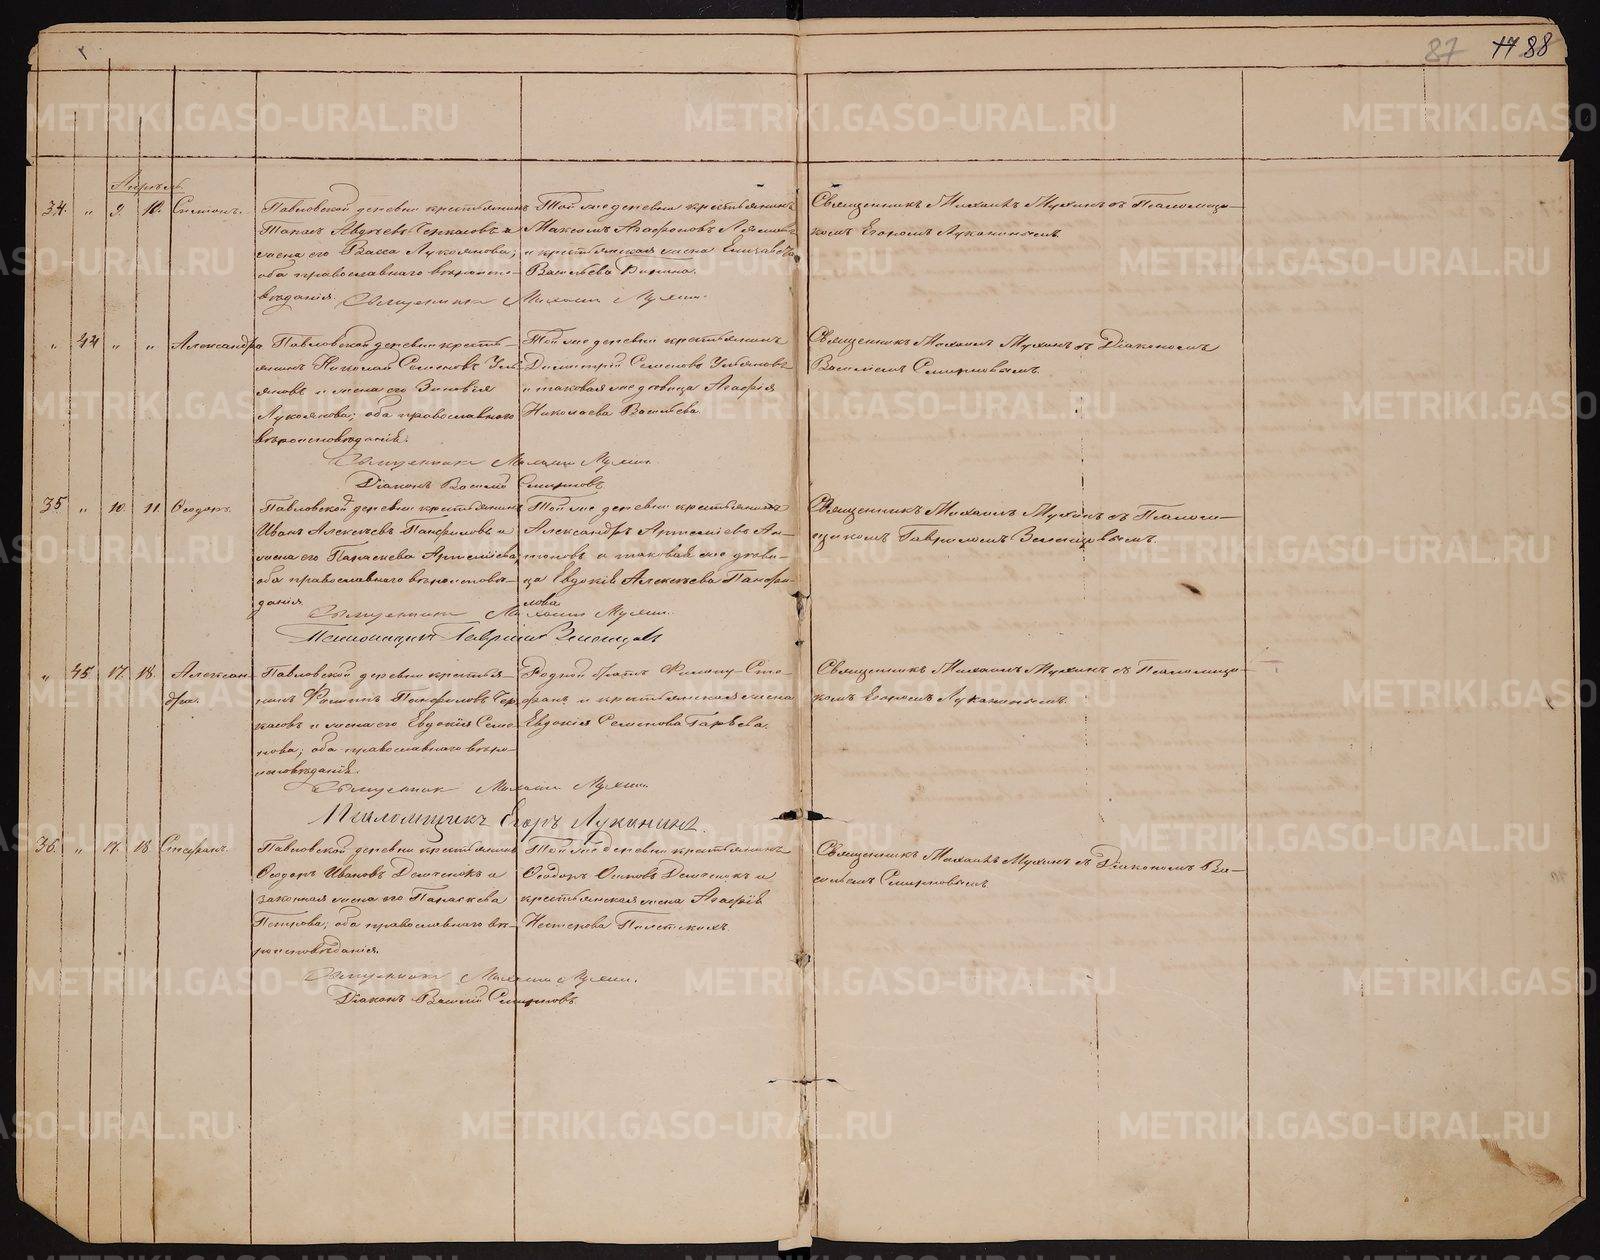 87 17 88
Апрѣль.
34. " 9. 10. Симеонъ.
Павловской деревни крестьянинъ
Авдѣевъ Черкасовъ и
жена его Васса Лукоянова;
оба православнаго вѣроиспо-
вѣданія. Священникъ Михаилъ Мухинъ.
Той же деревни крестьянинъ
Максимъ Агафоновъ
и крестьянская жена Елизавета
Васильева
Священникъ Михаилъ Мухинъ съ Псаломщи-
комъ Егоромъ Луканинымъ.
" 44 " " Александра
Павловской деревни кресть-
янинъ Николай Семеновъ Уль-
яновъ и жена его Зиновія
Лукоянова; оба православнаго
вѣроисповѣданія.
Священникъ Михаилъ Мухинъ.
Діаконъ Василій Смирновъ.
Той же деревни крестьянинъ
Димитрій Семеновъ Ульяновъ
и таковая же дѣвица Агафія
Николаева Васильева.
Священникъ Михаилъ Мухинъ съ Діакономъ
Василіемъ Смирновымъ.
35 " 10. 11. Ѳеодоръ.
Павловской деревни крестьянинъ
Иванъ Алексѣевъ Панфиловъ и
жена его Параскева Артемьева,
оба православнаго вѣроисповѣ-
данія.
Священникъ Михаилъ Мухинъ.
Псаломщикъ Гавріилъ
Той же деревни крестьянинъ
Александръ Артеміевъ Ан-
тоновъ и таковая же дѣви-
ца Евдокія Алексѣева Панфи-
лова
Священникъ Михаилъ Мухинъ съ Псалом-
щикомъ Гавріиломъ
" 45 17. 18. Алексан-
дра.
Павловской деревни крестья-
нинъ Филиппъ Панфиловъ Чер-
касовъ и жена его Евдокія Семе-
нова; оба православнаго вѣро-
исповѣданія.
Священникъ Михаилъ Мухинъ.
Псаломщикъ Егоръ Луканинъ.
Родной братъ Филиппу Сте-
фанъ и крестьянская жена
Евдокія Семенова
Священникъ Михаилъ Мухинъ съ Псаломщи-
комъ Егоромъ Луканинымъ.
36. " 17. 18 Стефанъ.
Павловской деревни крестьянинъ
Ѳеодоръ Ивановъ и
законная жена его Параскева
Петрова; оба православнаго вѣ-
роисповѣданія.
Священникъ Михаилъ Мухинъ.
Діаконъ Василій Смирновъ.
Той же деревни крестьянинъ
Ѳеодоръ Осиповъ и
крестьянская жена Агафія
Нестерова
Священникъ Михаилъ Мухинъ съ Діакономъ Ва-
силіемъ Смирновымъ.
METRIKI.GASO-URAL.RU